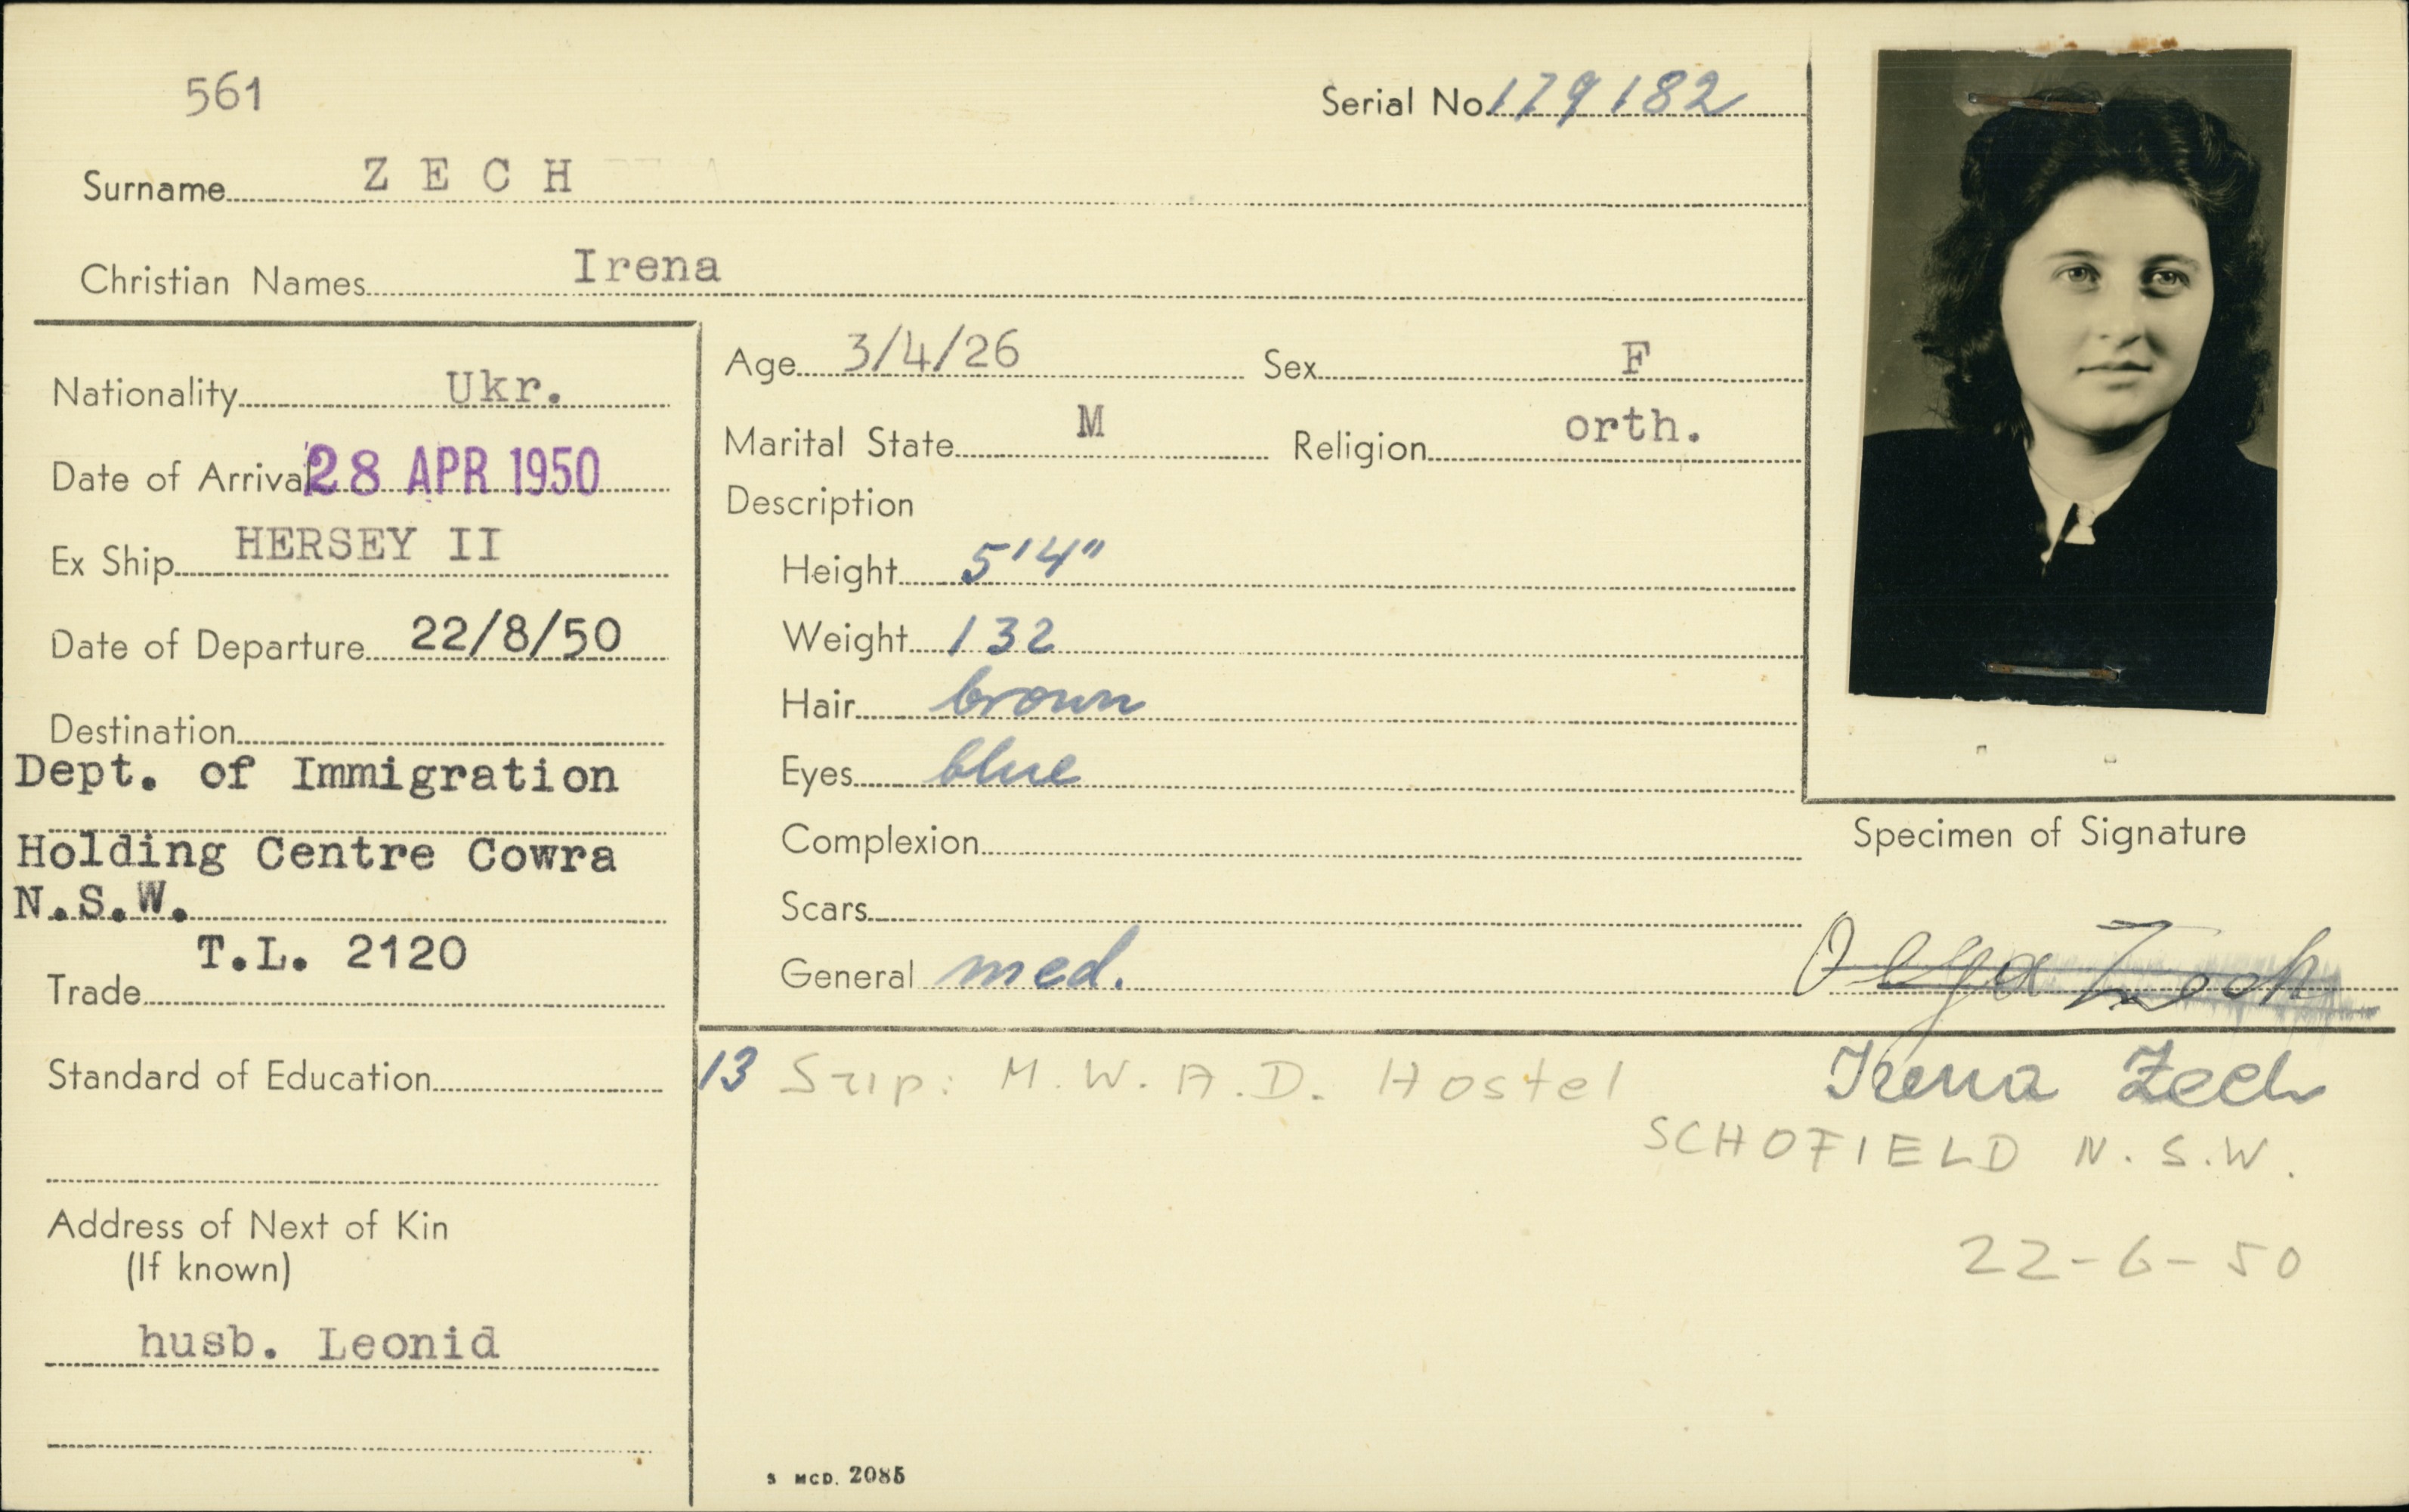 561
Serial No. 179182
Surname ZECH
Christian Names Irena
Nationality Ukr.
Date of Arrival 28 APR 1950
Ex Ship HERSEY II
Date of Departure 22/8/50
Destination
Dept. of Immigration
Holding Centre Cowra
N.S.W.
T.L. 2120
Trade
Standard of Education
Address of Next of Kin
(If known)
husb. Leonid
Age 3/4/26 Sex F
Marital State M Religion orth.
Description
Height 5'4"
Weight 132
Hair brown
Eyes blue
Complexion
Scars
General med.
Specimen of Signature
Olga Zech
Irena Zech
13 M.W.A.D. Hostel
SCHOFIELD N.S.W.
22-6-50
S MCD. 2085